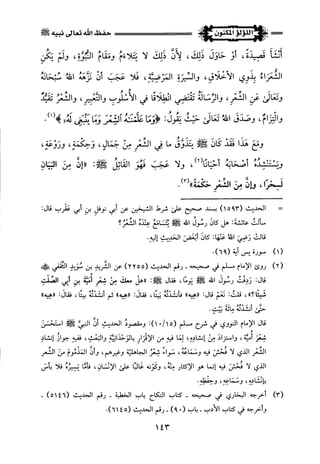 اللؤلؤ المكنون
حفظ الله تعالى نبيه ﷺ
أَنْشَأَ قَصِيدَةً، أَوْ حَاوَلَ ذَلِكَ، لِأَنَّ ذَلِكَ لَا يَتَلَاءَمُ وَمَقَامَ النُّبُوَّةِ، وَلَمْ يَكُنِ
الشُّعَرَاءُ بِذَوِي الأَخْلَاقِ، وَالسِّيرَةِ المَرْضِيَّةِ، فَلَا عَجَبَ أَنْ نَزَّهَهُ اللهُ سُبْحَانَهُ
وَتَعَالَى عَنِ الشِّعْرِ، وَالرِّسَالَةُ تَقْتَضِي انْطِلَاقًا فِي الأُسْلُوبِ وَالتَّعْبِيرِ، وَالشِّعْرُ تَقَيُّدٌ
وَالْتِزَامٌ، وَصَدَقَ اللهُ تَعَالَى حَيْثُ يَقُولُ: ﴿وَمَا عَلَّمْنَاهُ الشِّعْرَ وَمَا يَنْبَغِي لَهُ﴾(١).
وَمَعَ هَذَا فَقَدْ كَانَ ﷺ يَتَذَوَّقُ مَا فِي الشِّعْرِ مِنْ جَمَالٍ، وَحِكْمَةٍ، وَرَوْعَةٍ،
وَيَسْتَنْشِدُهُ أَصْحَابَهُ أَحْيَانًا(٢)، وَلَا عَجَبَ فَهُوَ القَائِلُ ﷺ: «إِنَّ مِنَ البَيَانِ
لَسِحْرًا، وَإِنَّ مِنَ الشِّعْرِ حِكْمَةً»(٣).
= الحديث (١٥٩٣) بسند صحيح على شرط الشيخين عن أبي نوفل بن أبي عقرب قال:
سألتُ عائشة: هل كان رسُولُ الله ﷺ يُتَسَامَعُ عِنْدَهُ الشِّعْرُ؟
قالت رضي الله عنها: كَانَ أَبْغَضَ الحَدِيثِ إليهِ.
(١) سورة يس آية (٦٩).
(٢) روى الإمام مسلم في صحيحه - رقم الحديث (٢٢٥٥) عن الشَّرِيدِ بن سُوَيْدٍ الثَّقَفِي ﷺ
قال: رَدِفْتُ رسُولَ الله ﷺ يَوْمًا، فقال ﷺ: «هَلْ مَعَكَ مِنْ شِعْرِ أُمَيَّةَ بنِ أَبِي الصَّلْتِ
شَيْئًا؟»، قلتُ: نَعَمْ قال: «هِيهِ» فأنشدْتُهُ بَيْتًا، فقال: «هِيهِ» ثم أنشدْتُهُ بيتًا، فقال: «هِيهِ»
حَتَّى أنشدْتُهُ مِائَةَ بَيْتٍ.
قال الإمام النووي في شرح مسلم (١٠/١٥): ومقصودُ الحديث أن النبيَّ ﷺ استحْسَنَ
شِعْرَ أُمَيَّةَ، واستزادَ مِنْ إنشادِهِ؛ لِمَا فيه من الإقرَارِ بالوَحْدَانِيَّةِ والبَعْثِ، ففيهِ جوازُ إنشادِ
الشعْرِ الذي لا فُحْشَ فيهِ وسَمَاعُهُ، سواءٌ شِعْرُ الجاهليَّةِ وغيرهم، وأنَّ المَذْمُومَ مِنَ الشعرِ
الذي لا فُحْشَ فيه إنما هو الإكثار مِنْهُ، وكَوْنِهِ غالبًا عَلَى الإنْسَانِ، فأمَّا يَسِيرُهُ فلا بأس
بإنشَادِهِ، وسَمَاعِهِ، وحِفْظِهِ.
(٣) أخرجه البخاري في صحيحه - كتاب النكاح باب الخطبة - رقم الحديث (٥١٤٦) -
وأخرجه في كتاب الأدب - باب (٩٠) - رقم الحديث (٦١٤٥).
١٤٣